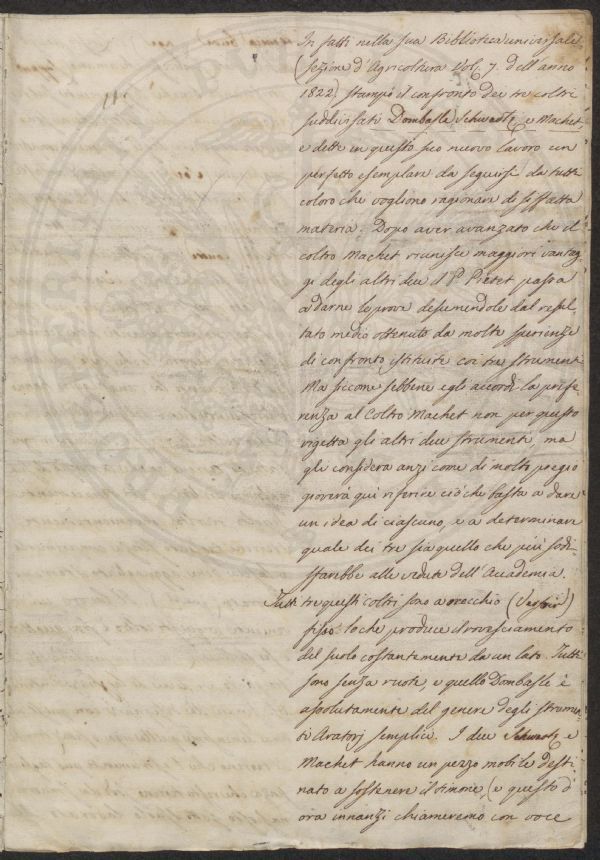 In fatti nella sua Biblioteca universale
(sezione d'Agricoltura Vol. 7. dell'anno
1822) stampò il confronto dei tre coltri
suddivisati Dombasle Schwartz, e Machet,
e dette in questo suo nuovo lavoro un
perfetto esemplare da seguirsi da tutti
coloro che vogliono ragionare di siffatta
materia. Dopo aver avanzato che il
coltro Machet riunisce maggiori vantag,
gi degli altri due il Pictet passa
a darne le prove desumendole dal resul,
tato medio ottenuto da molte sperienze
di confronto istituite coi tre strumenti
Ma siccome sebbene egli accordi la prefe,
renza al Coltro Machet non per questo
rigetta gli altri due strumenti, ma
gli considera anzi come di molto pregio
gioverà qui riferire ciò che basta a dare
un idea di ciascuno, e a determinare
quale dei tre sia quello che più sodi,
sfarebbe alle vedute dell'Accademia.
Tutti tre questi coltri sono a orecchio (Versoir)
fisso lo che produce il rovesciamento
del suolo costantemente da un lato. Tutti
sono senza ruote, e quello Dombasle è
assolutamente del genere degli strumen,
ti Aratorj semplici. I due Schwartz e
Machet hanno un pezzo mobile desti
nato a sostenere il timone (e questo d'
ora innanzi chiameremo con voce